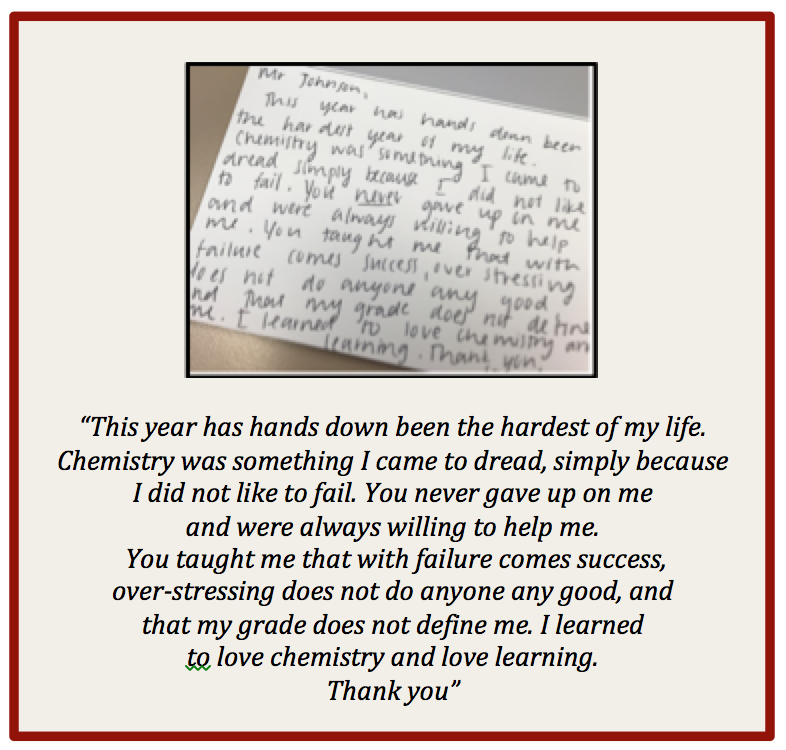 Mr Johnson,
This year has hands down been
the hardest year of my life.
Chemistry was something I came to
dread simply because I did not like
to fail. You never gave up on me
and were always willing to help
me. You taught me that with
failure comes success, over stressing
does not do anyone any good
and that my grade does not define
me. I learned to love chemistry an
learning. Thank you,
“This year has hands down been the hardest of my life.
Chemistry was something I came to dread, simply because
I did not like to fail. You never gave up on me
and were always willing to help me.
You taught me that with failure comes success,
over-stressing does not do anyone any good, and
that my grade does not define me. I learned
to love chemistry and love learning.
Thank you”